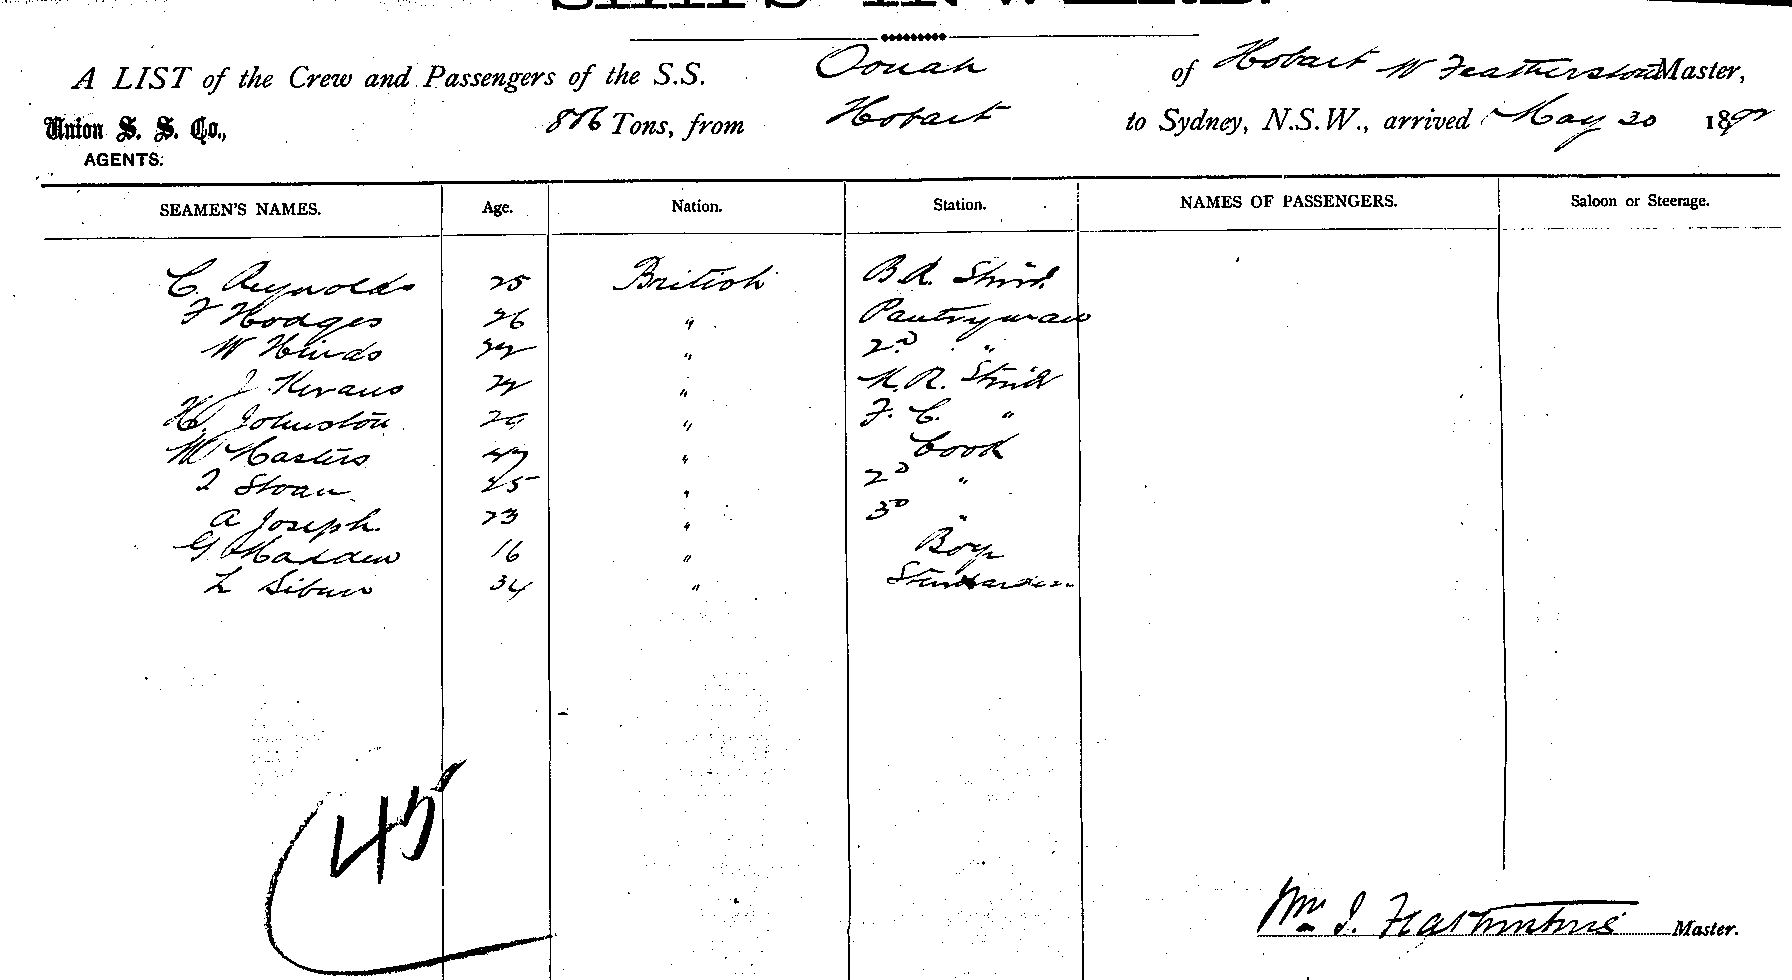 SHIPS INWARD.
A LIST of the Crew and Passengers of the S.S. Oonah of Hobart W Featherstone Master,
Union S. S. Co., AGENTS.
Tons, from Hobart to Sydney, N.S.W., arrived May 20 189
SEAMEN'S NAMES. Age. Nation. Station. NAMES OF PASSENGERS. Saloon or Steerage.
C. Reynolds 25 British B R. Stwd
F Hodges 26 " Pantryman
W Hinds " 2D "
J. Kevans " M.R. Stwd
H. Johnston 29 " F. C. "
W Masters " Cook
Sloan 25 " 2D "
A Joseph 23 " 3D "
G Madden 16 " Boy
34 " Stewardess
45
Wm I. Featherstone Master.